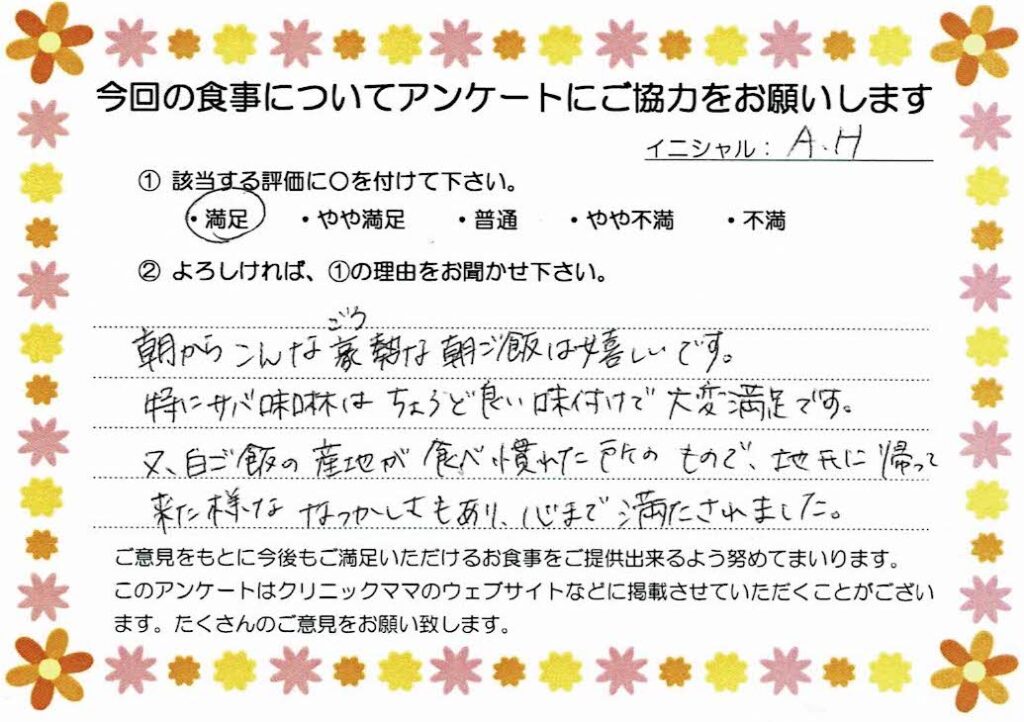 今回の食事についてアンケートにご協力をお願いします
イニシャル： A.H
① 該当する評価に〇を付けて下さい。
・満足 ・やや満足 ・普通 ・やや不満 ・不満
② よろしければ、①の理由をお聞かせ下さい。
ごう
朝からこんな豪勢な朝ご飯は嬉しいです。
特にサバ味醂はちょうど良い味付けで大変満足です。
又、白ご飯の産地が食べ慣れた所のもので、地元に帰って
来た様ななつかしさもあり、心まで満たされました。
ご意見をもとに今後もご満足いただけるお食事をご提供出来るよう努めてまいります。
このアンケートはクリニックママのウェブサイトなどに掲載させていただくことがござい
ます。たくさんのご意見をお願い致します。